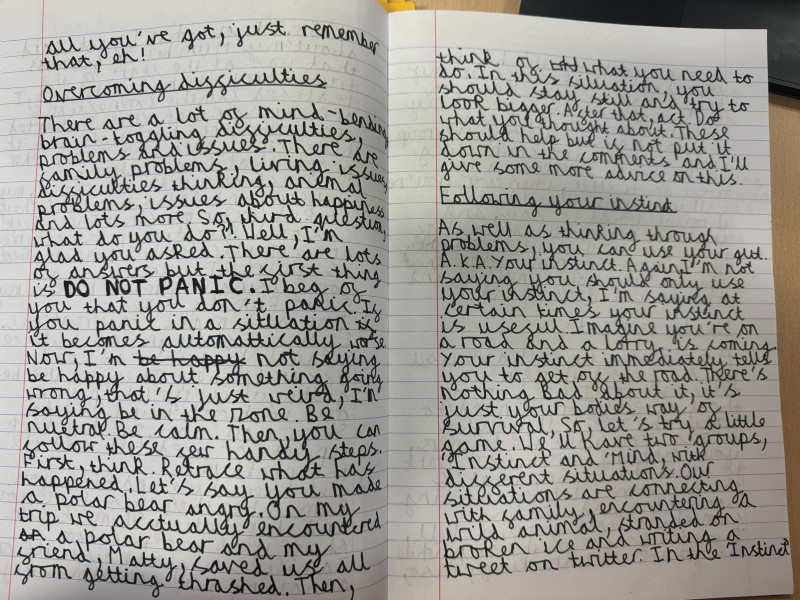 all you've got, just remember
that, eh!
Overcoming difficulties
There are a lot of mind-bending
brain-toggling difficulties,
problems and issues. There are
family problems, living issues,
difficulties thinking, animal
problems, issues about happiness
and lots more. So, third question,
what do you do?! Well, I'm
glad you asked. There are lots
of answers but the first thing
is DO NOT PANIC. I beg of
you that you don't panic. If
you panic in a situation is
it becomes automattically worse
Now, I'm be happy not saying
be happy about something going
wrong, that's just weird, I'm
saying be in the zone. Be
nuetral. Be calm. Then, you can
follow these few handy steps.
First, think. Retrace what has
happened. Let's say you made
a polar bear angry. On my
trip we acctually encountered
a polar bear and my
friend, Matty, saved us all
from getting thrashed. Then,
think of what you need to
do. In this situation, you
should stay still and try to
look bigger. After that, act. Do
what you thought about. These
should help but is not put it
down in the comments and I'll
give some more advice on this.
Following your instinct
As well as thinking through
problems, you can use your gut.
A.K.A. Your instinct. Again I'm not
saying you should only use
your instinct, I'm saying at
certain times your instinct
is useful. Imagine you're on
a road and a lorry is coming.
Your instinct immediately tells
you to get off the road. There's
nothing bad about it, it's
just your bodies way of
survival, So, let's try a little
game. We'll have two groups,
Instinct and Mind, with
different situations. Our
situations are connecting
with family, encountering a
wild animal, stranded on
broken ice and writing a
tweet on twitter. In the Instinct